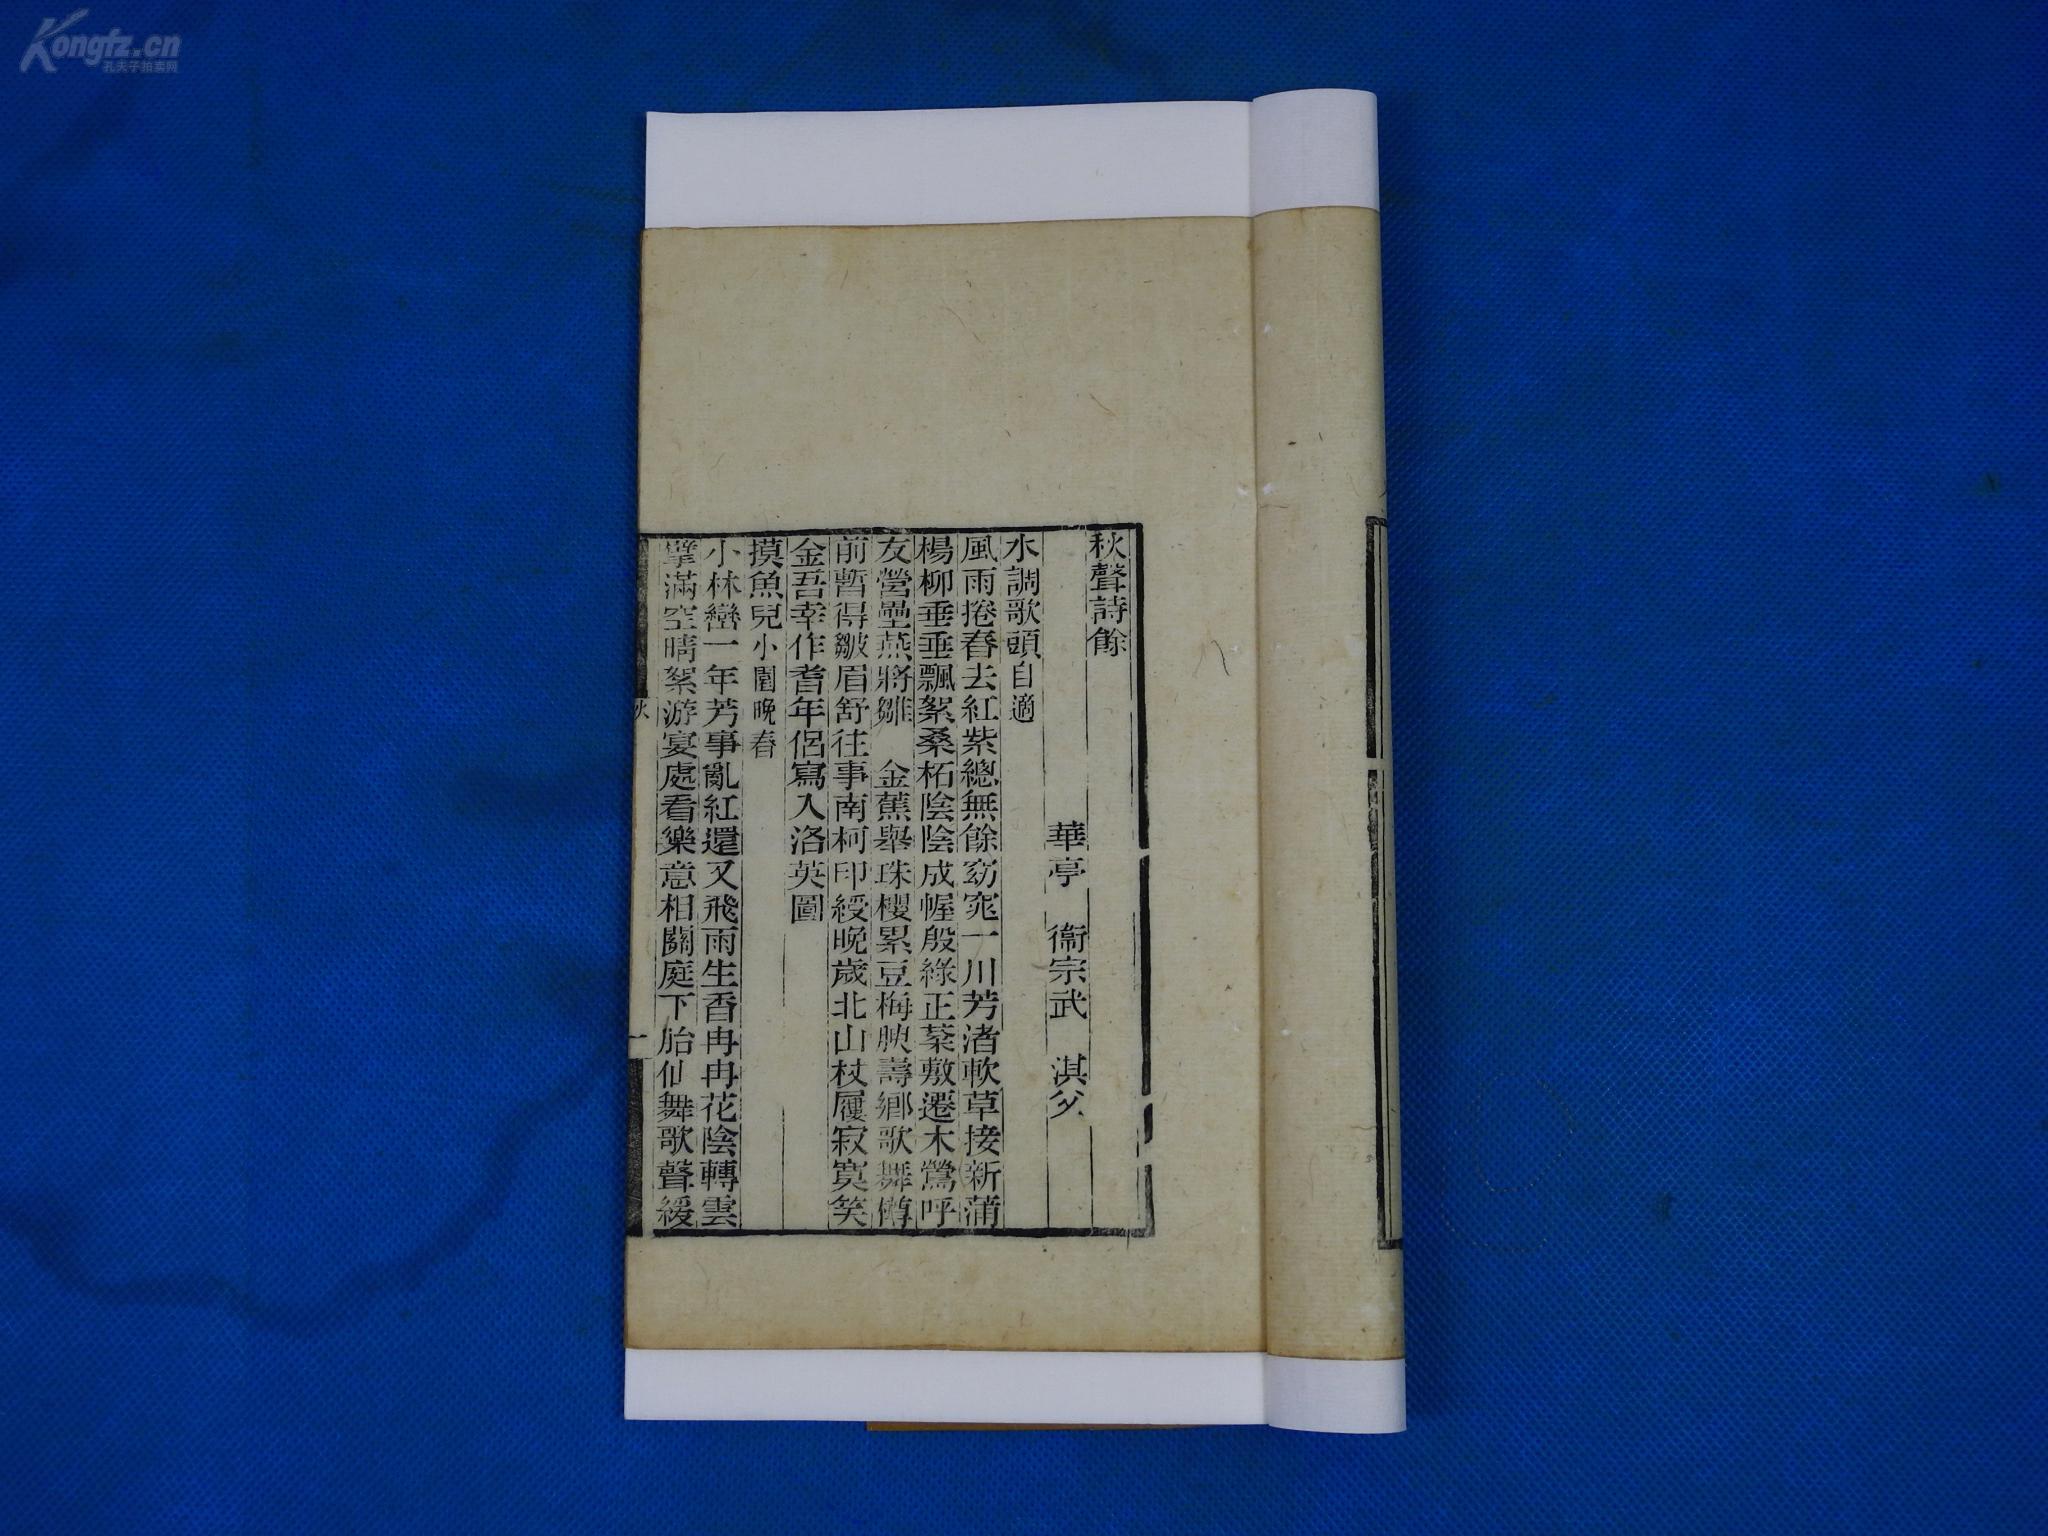 Kongfz.cn
孔夫子拍卖网
秋聲詩餘
華亭 衞宗武 淇父
水調歌頭自適
風雨捲春去紅紫總無餘窈窕一川芳渚軟草接新蒲
楊柳垂垂飄絮桑柘陰陰成幄殷綠正葉敷遷木鶯呼
友營壘燕將雛 金蕉舉珠櫻累豆梅腴壽鄉歌舞罇
前暫得皺眉舒往事南柯印綬晚歲北山杖履寂寞笑
金吾幸作耆年侶寫入洛英圖
摸魚兒小園晚春
小林巒一年芳事亂紅還又飛雨生香冉冉花陰轉雲
擘滿空晴絮游宴處看樂意相關庭下胎仙舞歌聲緩
秋
一